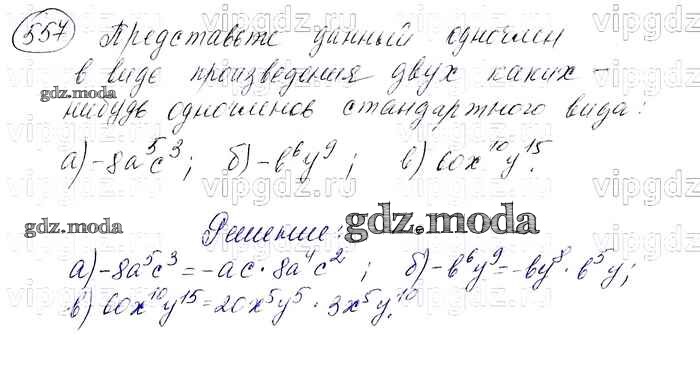 557 Представьте данный одночлен
в виде произведения двух каких-
нибудь одночленов стандартного вида:
а) -8a⁵c³; б) -b⁶y⁹; в) 60x¹⁰y¹⁵.
Решение:
а) -8a⁵c³ = -ac · 8a⁴c²; б) -b⁶y⁹ = -by⁸ · b⁵y;
в) 60x¹⁰y¹⁵ = 20x⁵y⁵ · 3x⁵y¹⁰.
gdz.moda
gdz.moda
gdz.moda
vipgdz